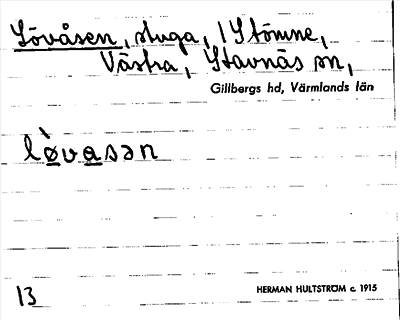 Lövåsen, stuga, 1 Stömne,
Västra, Stavnäs sn,
Gillbergs hd, Värmlands län
lø̀vasən
13
HERMAN HULTSTRÖM c. 1915